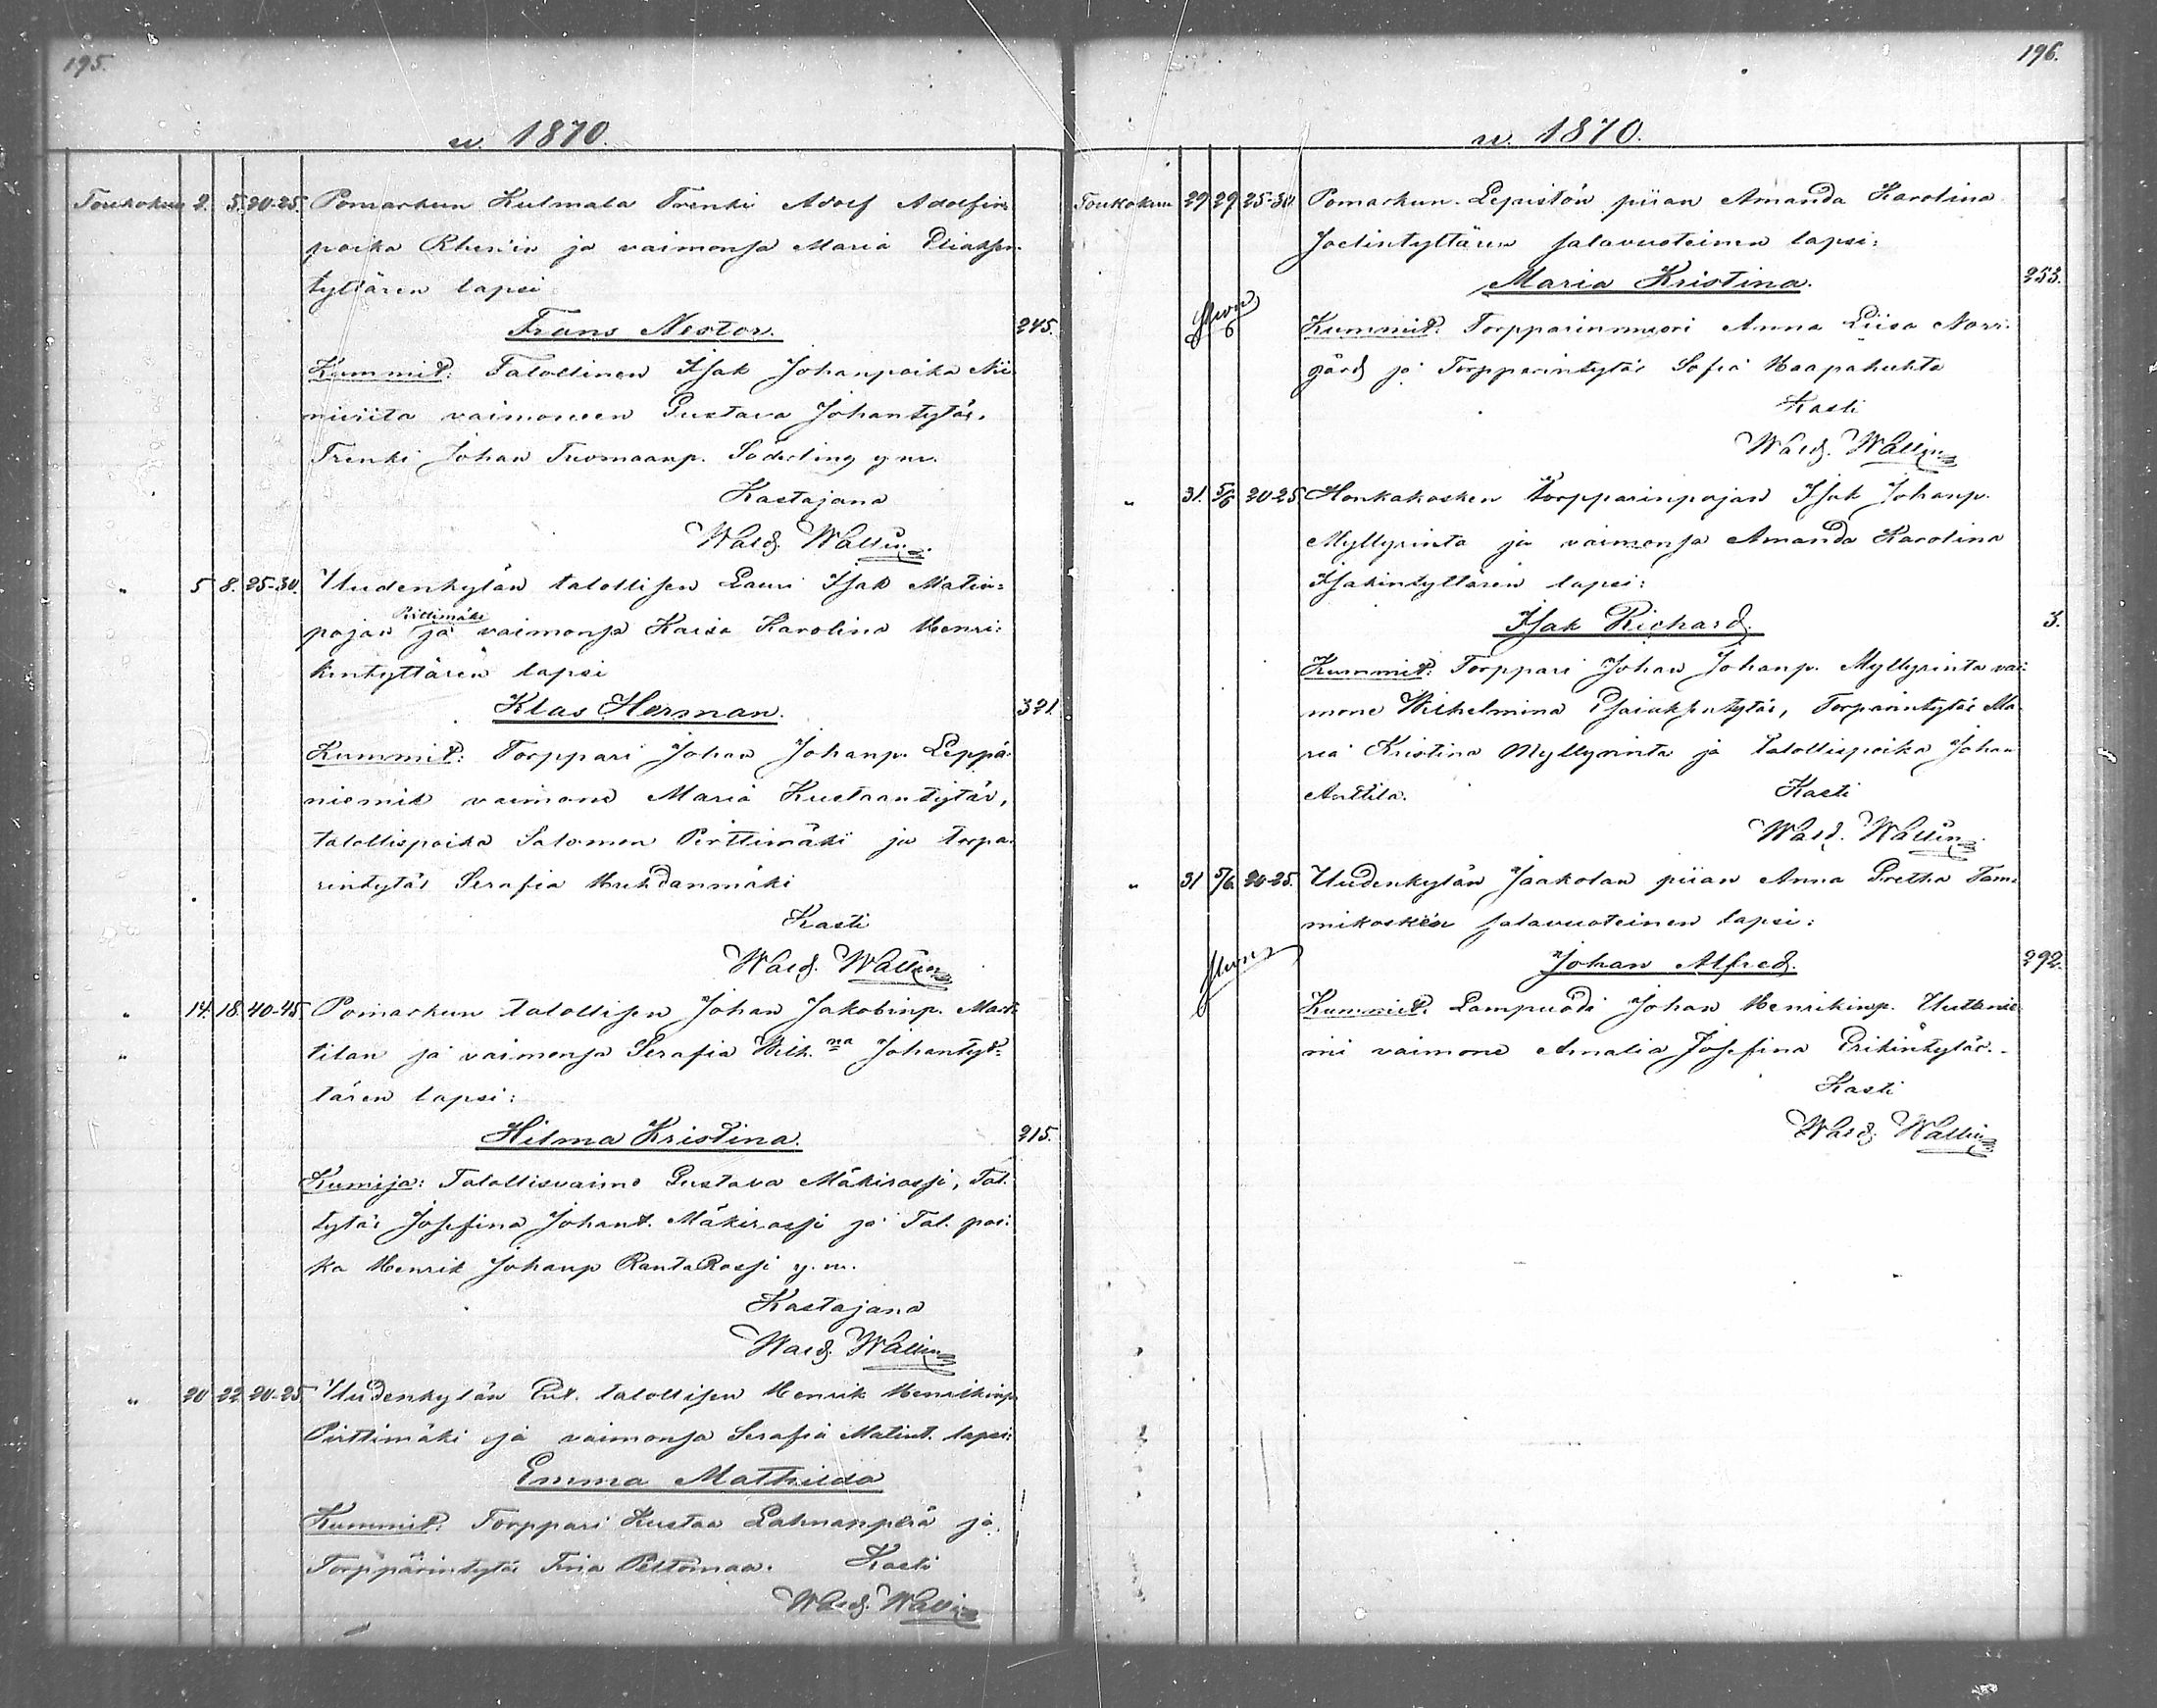 195.
w. 1870.
Toukokuu 2. 5. 20-25. Pomarkun Kulmala Trenki Adolf Adolfin
poika Rhenin ja vaimonsa Maria Eliaksen
tyttären lapsi
Frans Nestor. 245.
Kummit: Talollinen Isak Johanpoika Nii
niviita vaimoneen Gustava Johantytär,
Trenki Johan Tuomaanp. Söderling y m.
Kastajana
Wald. Wallin
" 5 8. 25-30. Uudenkylän talollisen Lauri Isak Matin=
Pirttimäki
pojan ja vaimonsa Kaisa Karolina Henri=
kintyttären lapsi
Klas Herman. 321.
Kummit: Torppari Johan Johanp. Leppä
niemit vaimone Maria Kustaantytär,
talollispoika Salomon Pirttimäki ja torpa
rintytär Serafia
Kasti
Wald. Wallin
" 14. 18. 40-45. Pomarkun talollisen Johan Jakobinp. Mart
" tilan ja vaimonsa Serafia Wilh.na Johantyt=
tären lapsi:
Hilma Kristina. 215.
Kumija: Talollisvaimo Gustava Mäkirossi, Tal.
tytär Josefina Johant. Mäkirossi ja Tal. poi
ka Henrik Johanp RantaRossi y. m.
Kastajana
Wald. Wallin
" 20 22. 20-25. Uudenkylän Ent. talollisen Henrik Henrikinp
Pirttimäki ja vaimonsa Serafia Matint. lapsi:
Emma Mathilda
Kummit: Torppari Kustaa Lahnanperä ja
Torppärintytär Fiia Peltomaa. Kasti
Wald. Wallin
196.
w. 1870.
Toukokuu 29 29 25-30 Pomarkun Lepistön piian Amanda Karolina
Joelintyttären salavuoteinen lapsi:
Maria Kristina. 253.
Kummit: Torpparinmuori Anna Liisa Norr
gård ja Torpparintytär Sofia Haapahuhta
Kasti
Wald. Wallin
" 31. 5/6 20-25 Honkakosken torpparinpojan Isak Johanp.
Myllyrinta ja vaimonsa Amanda Karolina
Isakintyttären lapsi:
Isak Richard. 3.
Kummit: Torppari Johan Johanp. Myllyrinta vai
mone Wilhelmina Esaiaksentytär, Torparintytär Ma
ria Kristina Myllyrinta ja talollispoika Johan
Anttila. Kasti
Wald. Wallin
" 31 5/6. 20-25. Uudenkylän Jaakolan piian Anna Gretha Tam=
mikosken salavuoteinen lapsi:
Johan Alfred. 292.
Kummit: Lampuodi Johan Henrikinp. Uuttanie
mi vaimone Amalia Josefina Erikintytär.
Kasti
Wald. Wallin